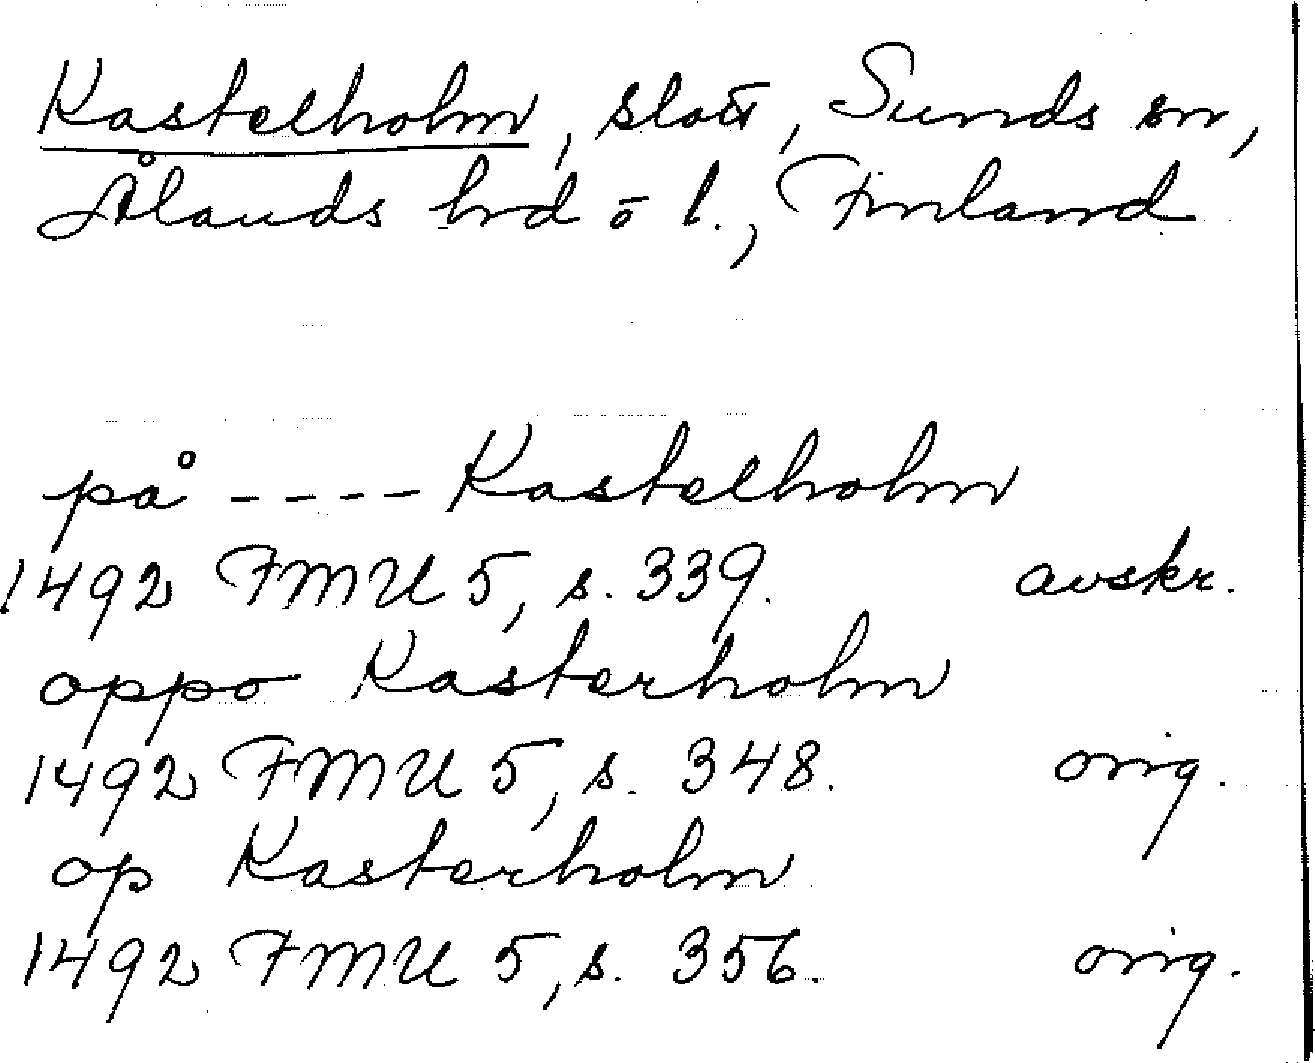 Kastelholm, slott, Sunds sn,
Ålands hrd o l., Finland
på ---- Kastelholm
1492 FMU 5, s. 339. avskr.
oppo Kasterholm
1492 FMU 5, s. 348. orig.
op Kasterholm
1492 FMU 5, s. 356. orig.